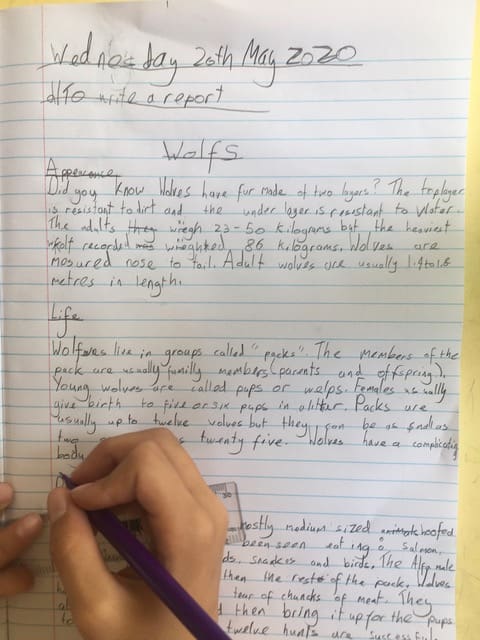 Wednesday 20th May 2020
to write a report
Wolfs
Appearance
Did you know Wolves have fur made of two layers? The top layer
is resistant to dirt and the under layer is resistant to Water.
The adults they wiegh 23-50 kilograms but the heaviest
wolf recorded was wieghked 86 kilograms. Wolves are
mesured nose to tail. Adult wolves are usually 1.4 to 1.8
metres in length.
Life
Wolfves live in groups called "packs". The members of the
pack are usually family members (parents and offspring).
Young wolves are called pups or welps. Females usually
give birth to five or six pups in a litter. Packs are
usually up to twelve wolves but they can be as small as
two twenty five. Wolves have a complicating
body
mostly medium sized animals hoofed
been seen eating a salmon,
snackes and birds. The Alfa male
then the rest of the pack. Wolves
tear of chuncks of meat. They
then bring it up for the pups
twelve hunts are